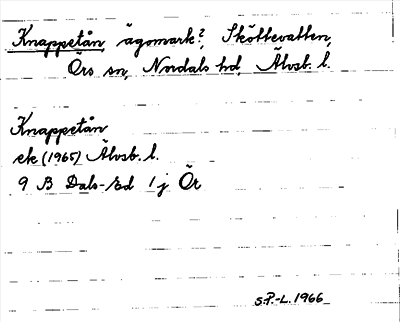 Knappetån, ägomark?, Sköttevatten,
Örs sn, Nordals hd, Älvsb. l.
Knappetån
ek (1965) Älvsb. l.
9 B Dals-Ed 1 j Ör
S.P.-L. 1966